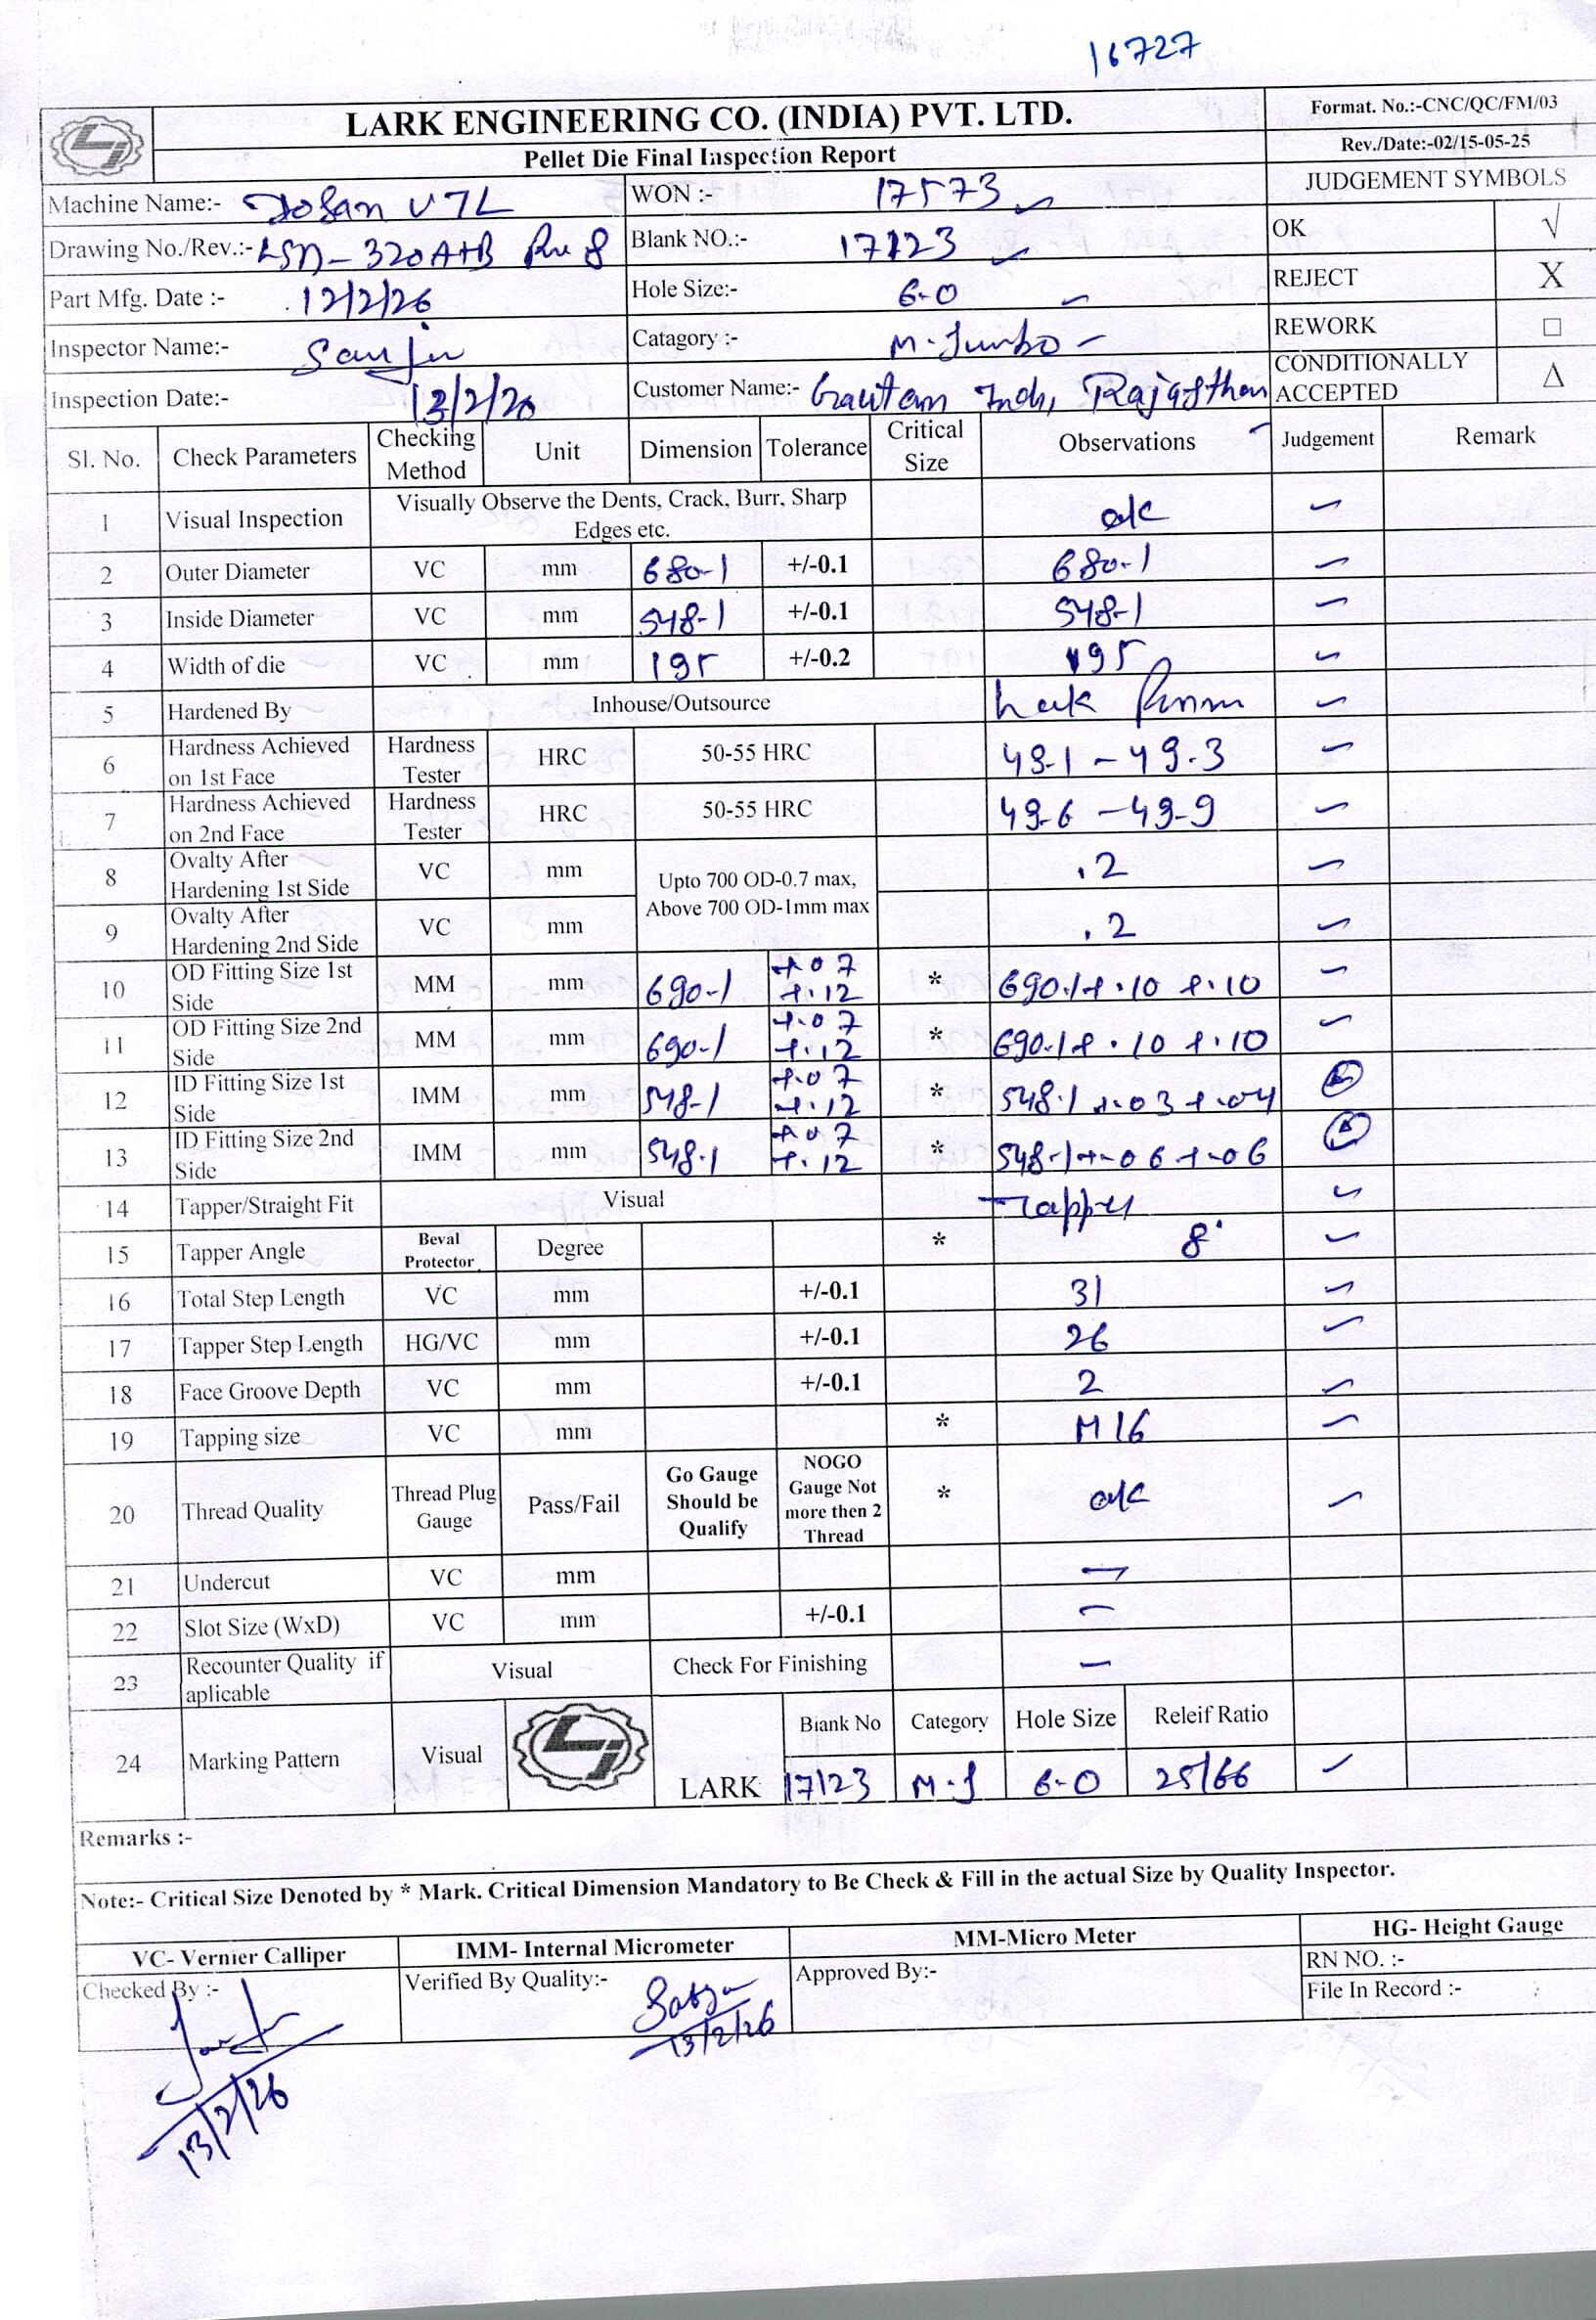 16727
LARK ENGINEERING CO. (INDIA) PVT. LTD.
Pellet Die Final Inspection Report
Format. No.:-CNC/QC/FM/03
Rev./Date:-02/15-05-25
Machine Name:- Dosan VTL WON :- 17573 JUDGEMENT SYMBOLS
Drawing No./Rev.:- LSD-320A+B Rev 8 Blank NO.:- 17123 OK √
Part Mfg. Date :- 12/2/26 Hole Size:- 6.0 REJECT X
Inspector Name:- Sanju Catagory :- M.Jumbo REWORK □
Inspection Date:- 13/2/26 Customer Name:- Gautam Inds, Rajasthan CONDITIONALLY ACCEPTED Δ
Sl. No. Check Parameters Checking Method Unit Dimension Tolerance Critical Size Observations Judgement Remark
1 Visual Inspection Visually Observe the Dents, Crack, Burr, Sharp Edges etc. ok ✓
2 Outer Diameter VC mm 680.1 +/-0.1 680.1 ✓
3 Inside Diameter VC mm 548.1 +/-0.1 548.1 ✓
4 Width of die VC mm 195 +/-0.2 195 ✓
5 Hardened By Inhouse/Outsource ✓
6 Hardness Achieved on 1st Face Hardness Tester HRC 50-55 HRC 49.1 - 49.3 ✓
7 Hardness Achieved on 2nd Face Hardness Tester HRC 50-55 HRC 49.6 - 49.9 ✓
8 Ovalty After Hardening 1st Side VC mm Upto 700 OD-0.7 max, Above 700 OD-1mm max .2 ✓
9 Ovalty After Hardening 2nd Side VC mm .2 ✓
10 OD Fitting Size 1st Side MM mm 690.1 +.07 +.12 * 690.1+.10 +.10 ✓
11 OD Fitting Size 2nd Side MM mm 690.1 +.07 +.12 * 690.1+.10 +.10 ✓
12 ID Fitting Size 1st Side IMM mm 548.1 +.07 +.12 * 548.1 +.03 +.04 Δ
13 ID Fitting Size 2nd Side IMM mm 548.1 +.07 +.12 * 548.1+.06 +.06 Δ
14 Tapper/Straight Fit Visual Tapper ✓
15 Tapper Angle Beval Protector Degree * 8° ✓
16 Total Step Length VC mm +/-0.1 31 ✓
17 Tapper Step Length HG/VC mm +/-0.1 26 ✓
18 Face Groove Depth VC mm +/-0.1 2 ✓
19 Tapping size VC mm * M16 ✓
20 Thread Quality Thread Plug Gauge Pass/Fail Go Gauge Should be Qualify NOGO Gauge Not more then 2 Thread * ok ✓
21 Undercut VC mm —
22 Slot Size (WxD) VC mm +/-0.1 —
23 Recounter Quality if aplicable Visual Check For Finishing —
24 Marking Pattern Visual LARK Blank No 17123 Category M.J Hole Size 6.0 Releif Ratio 25/66 ✓
Remarks :-
Note:- Critical Size Denoted by * Mark. Critical Dimension Mandatory to Be Check & Fill in the actual Size by Quality Inspector.
VC- Vernier Calliper IMM- Internal Micrometer MM-Micro Meter HG- Height Gauge
Checked By :- Verified By Quality:- Approved By:- RN NO. :-
File In Record :-
Satya
13/2/26
13/2/26